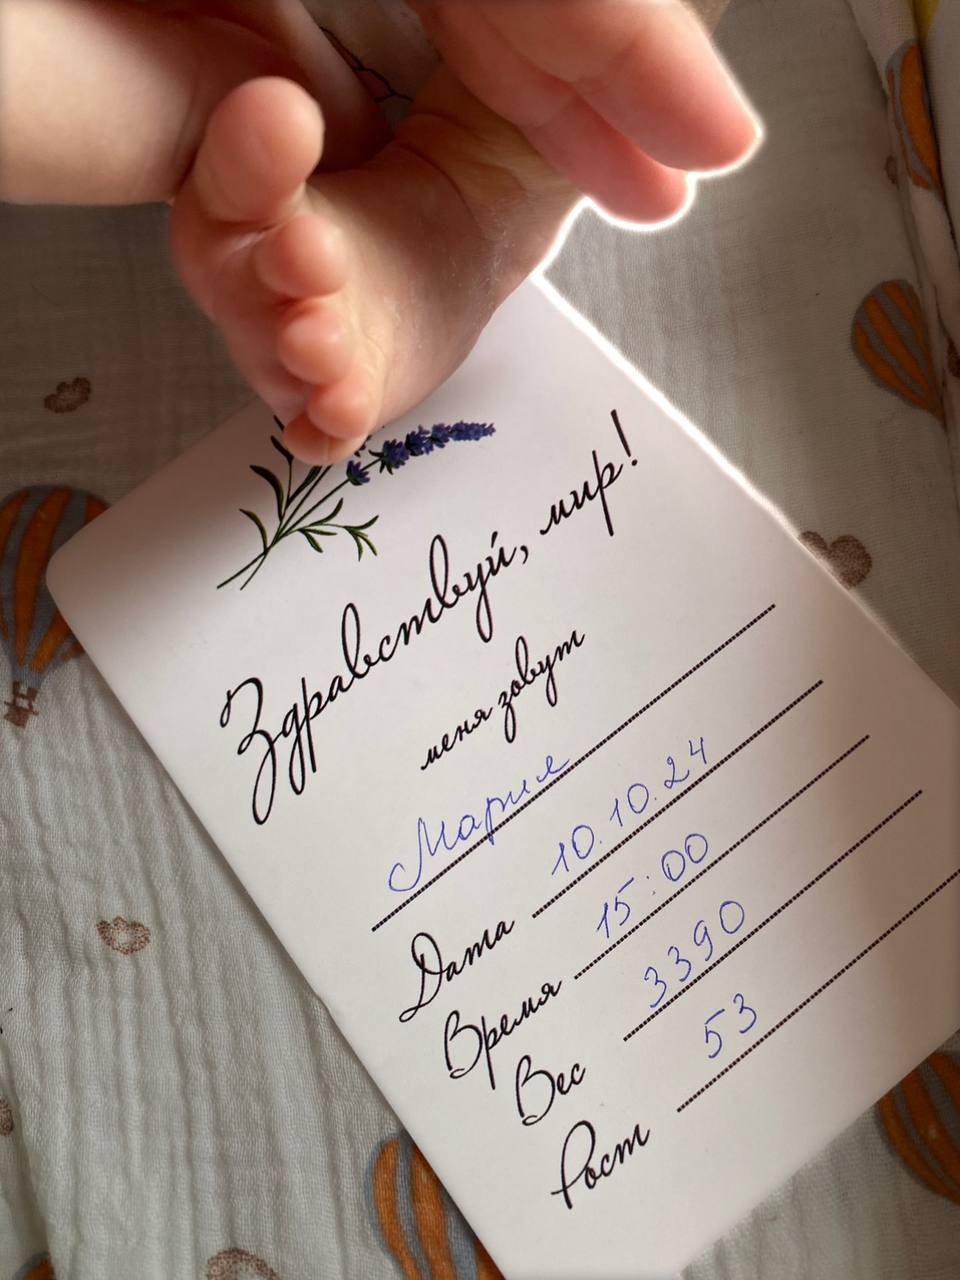 Здравствуй, мир!
меня зовут
Мария
Дата 10.10.24
Время 15:00
Вес 3390
Рост 53